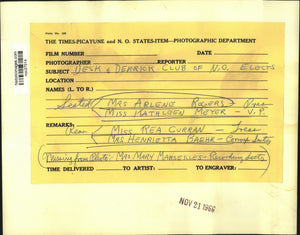 THE TIMES-PICAYUNE and N. O. STATES-ITEM—PHOTOGRAPHIC DEPARTMENT
FILM NUMBER DATE
PHOTOGRAPHER REPORTER
SUBJECT DESK & DERRICK CLUB OF N.O. ELECTS
LOCATION
NAMES (L. TO R.)
Seated MRS ARLENE ROGERS Pres
MISS KATHLEEN MEYER - V.P.
REMARKS: Rear MISS REA CURRAN - Treas
MRS HENRIETTA BAEHR - Corresp Secty
Missing from Photo: MRS. MARY MARSEILLES - Recording Secty
TIME DELIVERED TO ARTIST: TO ENGRAVER:
NOV 21 1966